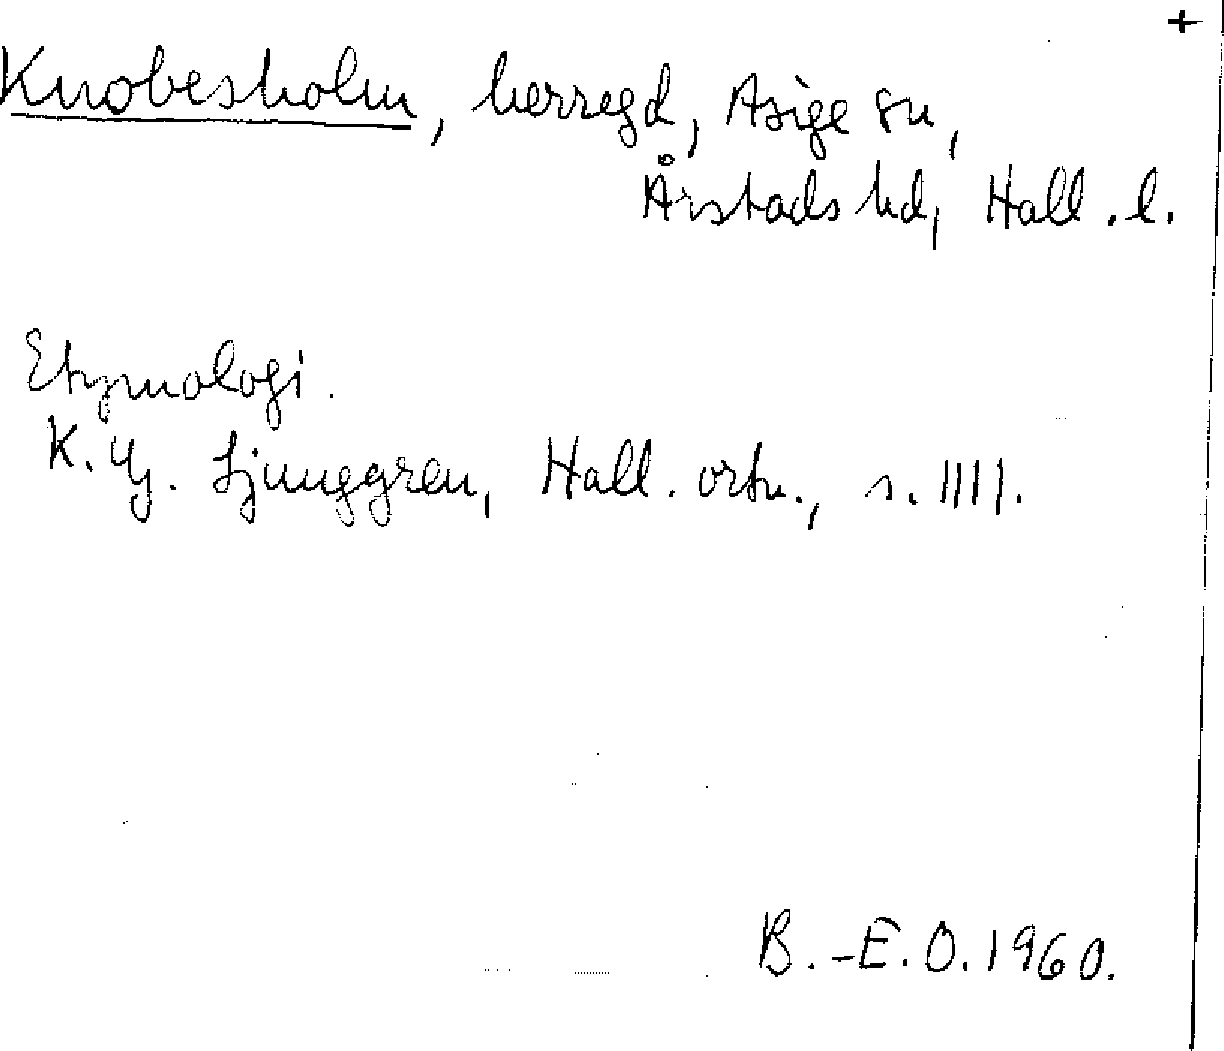 +
Knobesholm, herregd, Asige sn,
Årstads hd, Hall. l.
Etymologi.
K. G. Ljunggren, Hall. ortn., s. 1111.
B.-E. O. 1960.